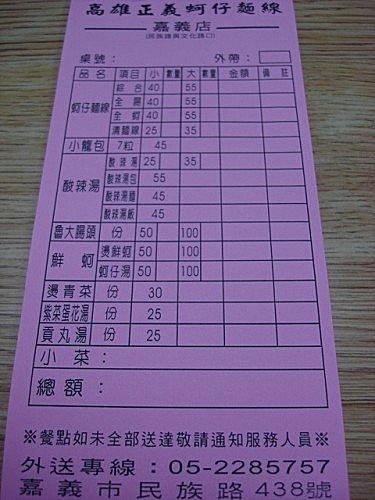 高雄正義蚵仔麵線
嘉義店
(民族路與文化路口)
桌號： 外帶：
品名 項目 小 數量 大 數量 金額 備註
蚵仔麵線 綜合 40 55
全腸 40 55
全蚵 40 55
清麵線 25 35
小籠包 7粒 45
酸辣湯 酸辣湯 25 35
酸辣湯包 55
酸辣湯麵 45
酸辣湯飯 45
魯大腸頭 份 50 100
鮮蚵 燙鮮蚵 50 100
蚵仔湯 50 100
燙青菜 份 30
紫菜蛋花湯 份 25
貢丸湯 份 25
小菜：
總額：
※餐點如未全部送達敬請通知服務人員※
外送專線：05-2285757
嘉義市民族路438號